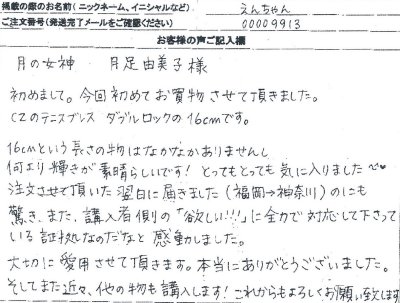 掲載の際のお名前（ニックネーム、イニシャルなど） えんちゃん
ご注文番号（発送完了メールをご確認ください） 00009913
お客様の声ご記入欄
月の女神 月足由美子様
初めまして。今回初めてお買物させて頂きました。
CZのテニスブレス ダブルロックの16cmです。
16cmという長さの物はなかなかありませんし
何より輝きが素晴らしいです！とってもとっても気に入りました
注文させて頂いた翌日に届きました（福岡→神奈川）のにも
驚き、また、購入者側の「欲しい!!!」に全力で対応して下さって
いる証拠なのだなと感動しました。
大切に愛用させて頂きます。本当にありがとうございました。
そしてまた近々、他の物も購入します！これからもよろしくお願い致します